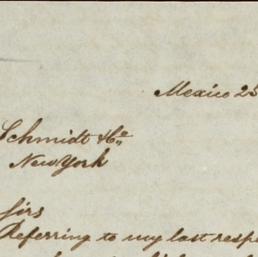 Mexico 25
Schmidt & Co
New York
Sirs
Referring to my last resp